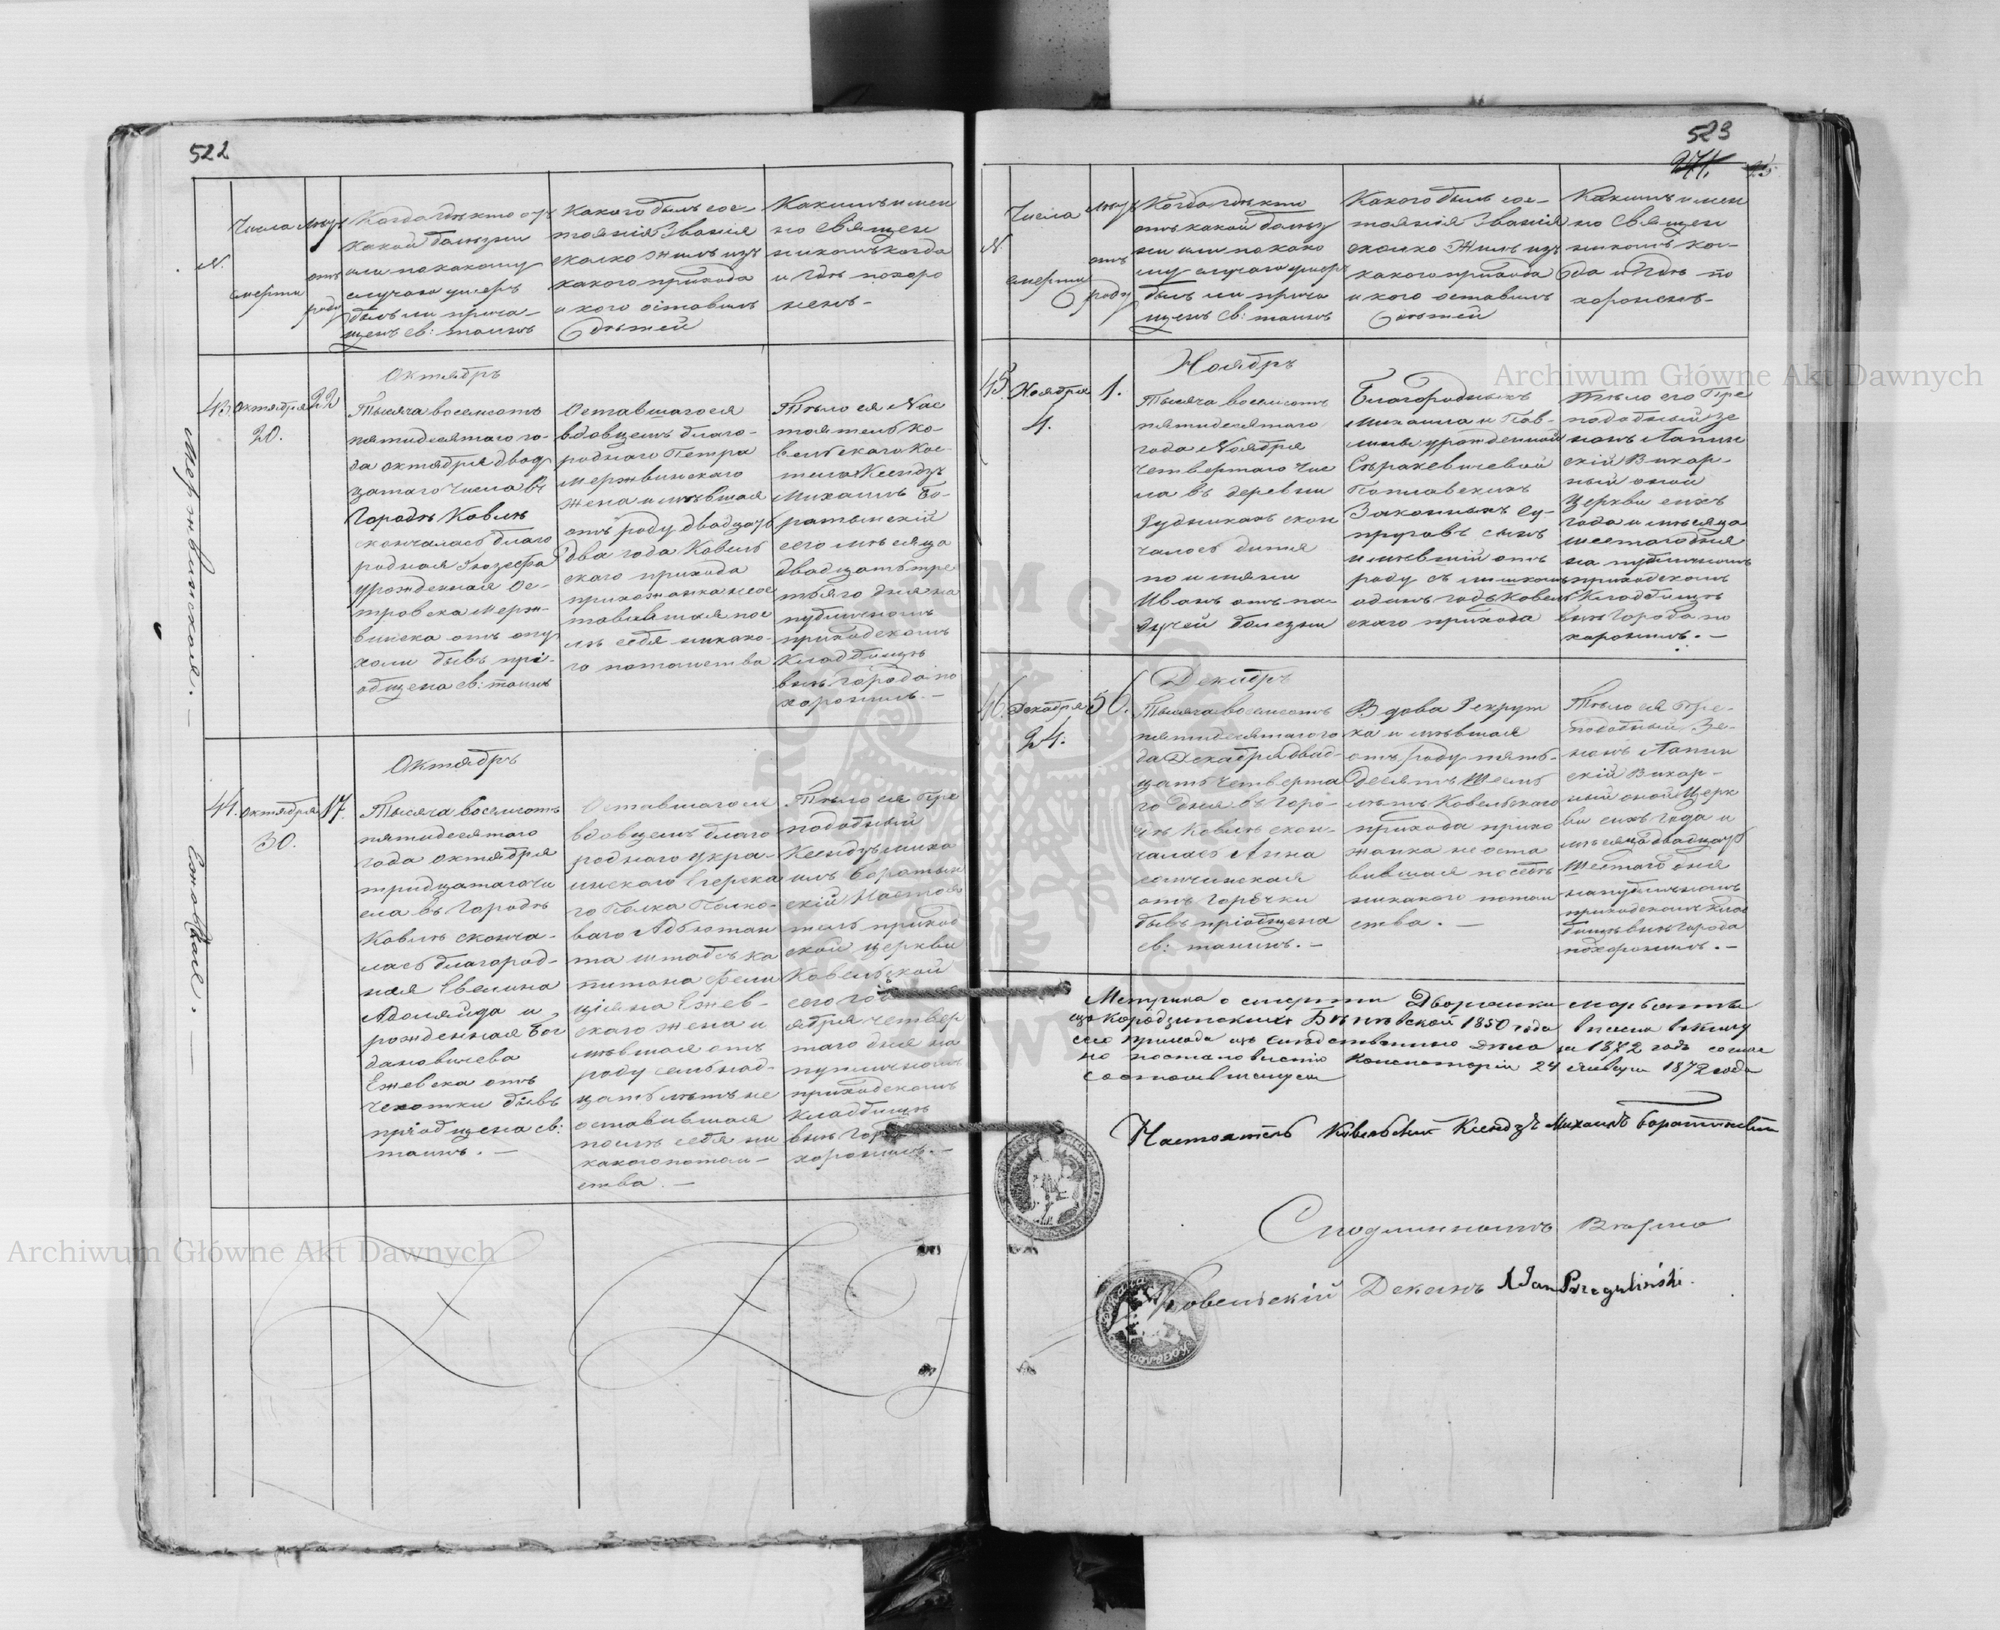 522
N.
Числа
смерти
Лѣтъ
отъ
роду
Когда гдѣ кто отъ
какой болѣзни
или по какому
случаю умеръ
былъ ли прича-
щенъ св: таинъ
Какого былъ сос-
тоянія Званія
сколко жилъ изъ
какого прихода
и кого оставилъ
Сдѣтей
Какимъ имен
но священ
никомъ когда
и гдѣ похоро
ненъ-
43.
Октября
20.
22
Октябръ
Тысяча восемсотъ
пятидесятаго го-
да октября двад
цатаго числа въ
городѣ Ковлѣ
скончалась благо
родная Іозефа
урожденная Ос-
тровска Мерж-
винска отъ опу
холи бывъ прі-
общена св: таинъ
Оставшагося
вдовцемъ благо-
роднаго Петра
Мержвинскаго
жена имѣвшая
отъ роду двадцать
два года Ковель
скаго прихода
прихожанка неос
тавившая пос
лѣ себя никако-
го потомства
Тѣло ея Нас
тоятель Ко-
вельскаго Кос-
тела Ксендзъ
Михаилъ Бо-
ратынскій
сего мѣсяца
двадцать тре
тьяго дня на
публичномъ
приходскомъ
Кладбищѣ
внѣ города по
хоронилъ.-
Мержвинская.-
44.
Октября
30.
17.
Октябръ
Тысяча восемсотъ
пятидесятаго
года октября
тридцатаго чи
сла въ городѣ
Ковлѣ сконча-
лась благород-
ная Евелина
Аделяида и
рожденная Бог
дановичева
Ежевска отъ
чехотки бывъ
пріобщена св:
таинъ.-
Оставшагося
вдовцемъ благо
роднаго Укра-
инскаго Егерска
го Полка Полко-
ваго Адъютан
та штабсъ ка
питана Фели
ціяна Ежев-
скаго жена и
мѣвшая отъ
роду семьнад-
цать лѣтъ не
оставившая
послѣ себя ни
какого потом-
ства.-
Тѣло ея Пре
подобный
Ксендзъ Миха
илъ Боратын
скій Настоя
тель приход
ской церкви
Ковельской
сего го
ября четвер
таго дня на
публичномъ
приходскомъ
Кладбищѣ
внѣ гор
хоронилъ.-
523
271.
N
Числа
смерти
Лѣтъ
отъ
роду
Когда гдѣ кто
отъ какой болѣз
ни или по како
му случаю умер
былъ ли прича
щенъ св: таинъ
Какого былъ сос-
тоянія Званія
сколко жилъ изъ
какого прихода
и кого оставилъ
Сдѣтей
Какимъ имен
но Священ
никомъ ког-
да и гдѣ по
хороненъ-
45.
Ноября
4.
1.
Ноябръ
Тысяча восемсотъ
пятидесятаго
года Ноября
четвертаго чис
ла въ деревни
Рудникахъ скон
чалось дитя
по имени
Иванъ отъ па-
дучей болезни
Благородныхъ
Михаила и Пав-
лины урожденной
Поплавскихъ
Законныхъ Су-
пруговъ сынъ
имѣвшій отъ
роду съ лишкомъ
одинъ годъ Ковель
скаго прихода
Тѣло его Пре
подобный Зе
нонъ Лапин
скій Викар-
ный оной
Церкви сихъ
года и мѣсяца
шестаго дня
на публичномъ
приходскомъ
Кладбищѣ
внѣ города по
хоронилъ.-
46.
Декабря
24.
56.
Декабръ
Тысяча восемсотъ
пятидесятаго го
да Декабря двад-
цать четверта
го дня въ горо-
дѣ Ковлѣ скон-
чалась Анна
отъ горячки
бывъ пріобщена
св: таинъ.-
Вдова Рекрут
ка имѣвшая
отъ роду пять-
десятъ шесть
лѣтъ Ковельскаго
прихода прихо
жанка не оста
вившая по себѣ
никакого потом
ства.-
Тѣло ея Пре-
подобный Зе-
нонъ Лапин
скій Викар-
ный оной Церк
ви сихъ года и
мѣсяца двадцать
шестаго дня
на публичномъ
приходскомъ клад
бищѣ внѣ города
похоронилъ.-
Метрика о смерти Дворянки
1850 года вписана въ книгу
сего прихода изъ слѣдственнаго дѣла за 1872 годъ соглас
но постановленію Консисторіи 24 января 1872 года
состоявшемуся
Настоятель Ковельскій Ксендзъ Михаилъ Боратынскій
Сподлиннымъ Вѣрно
Ковельскій Деканъ X Jan Przegaliński.
Archiwum Główne Akt Dawnych
Archiwum Główne Akt Dawnych